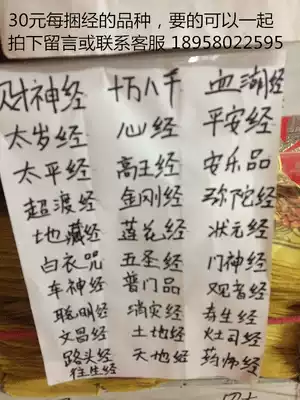 30元每捆经的品种，要的可以一起
拍下留言或联系客服 18958022595
财神经 十万八千 血湖经
太岁经 心经 平安经
太平经 高王经 安乐品
超渡经 金刚经 弥陀经
地藏经 莲花经 状元经
白衣咒 五圣经 门神经
车神经 普门品 观音经
聪明经 消灾经 寿生经
文昌经 土地经 灶司经
路头经 天地经 药师经
往生经